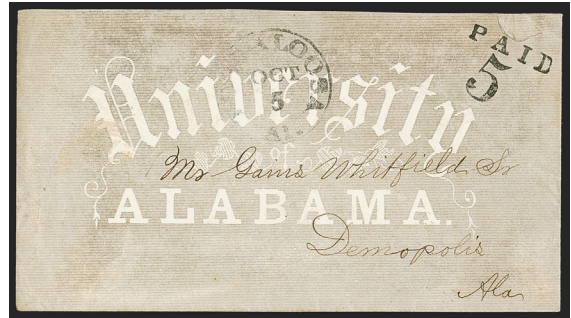 PAID
5
ALOOSA
OCT
5
AL.
University
of
ALABAMA.
Mr Gains Whitfield Sr
Demopolis
Ala